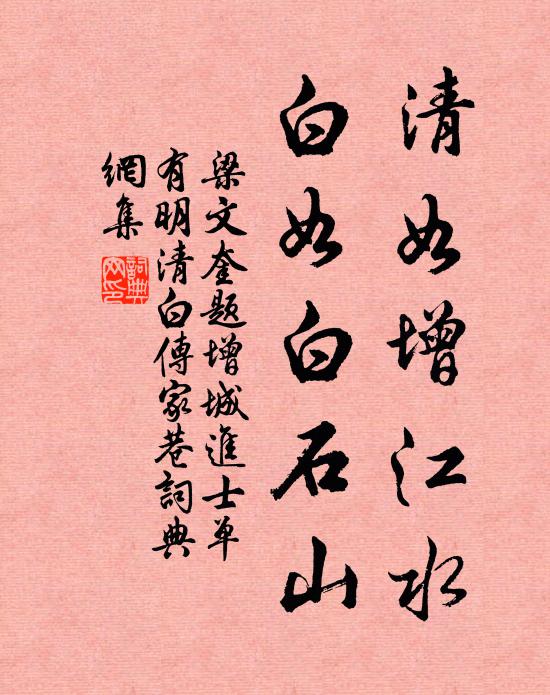 清如增江水
白如白石山
梁文奎題增城進士單
有明清白傳家巷詞典
網集
詞典網印